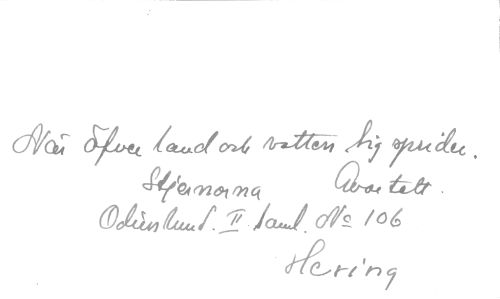 När öfver land och vatten sig sprider.
Stjernorna Qvartett.
Odinslund. II saml. No 106
Hering